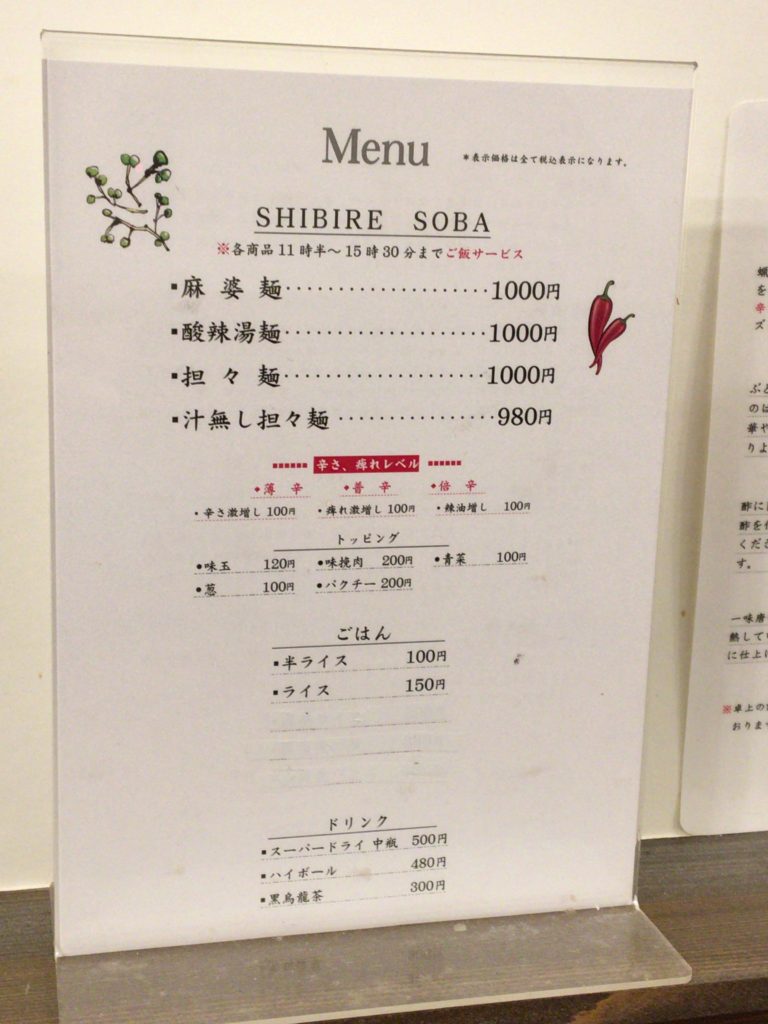 Menu ＊表示価格は全て税込表示になります。
SHIBIRE SOBA
※各商品11時半～15時30分までご飯サービス
▪麻婆麺····················1000円
▪酸辣湯麺···················1000円
▪担々麺····················1000円
▪汁無し担々麺···············980円
辛さ、痺れレベル
◆薄辛 ◆普辛 ◆倍辛
・辛さ激増し 100円 ・痺れ激増し 100円 ・辣油増し 100円
トッピング
●味玉 120円 ●味挽肉 200円 ●青菜 100円
●葱 100円 ●パクチー 200円
ごはん
▪半ライス 100円
▪ライス 150円
ドリンク
▪スーパードライ 中瓶 500円
▪ハイボール 480円
▪黒烏龍茶 300円
を
辛
ズ
ぶど
のは
華や
りよ
酢に
酢を
くださ
す。
一味唐
熱してい
に仕上げ
※卓上の
おりま